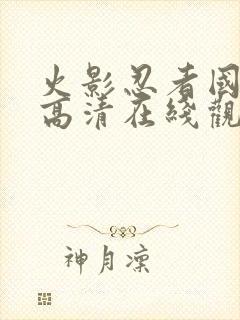 火影忍者國
高清在綫觀
神月凜